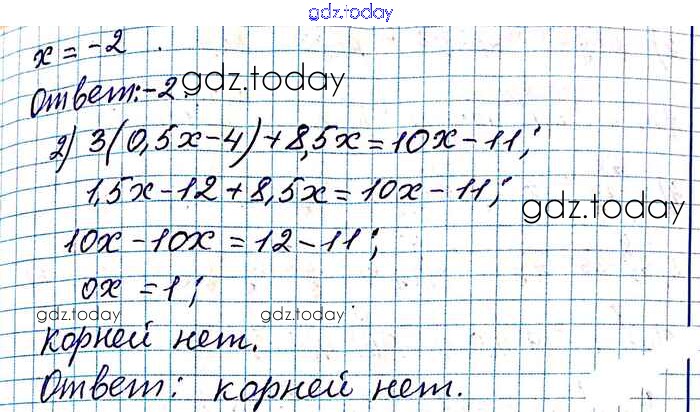 gdz.today
x = -2
Ответ: -2 gdz.today
2) 3(0,5x-4)+8,5x=10x-11;
1,5x-12+8,5x=10x-11;
gdz.today
10x-10x=12-11;
0x=1;
gdz.today gdz.today
корней нет.
Ответ: корней нет.